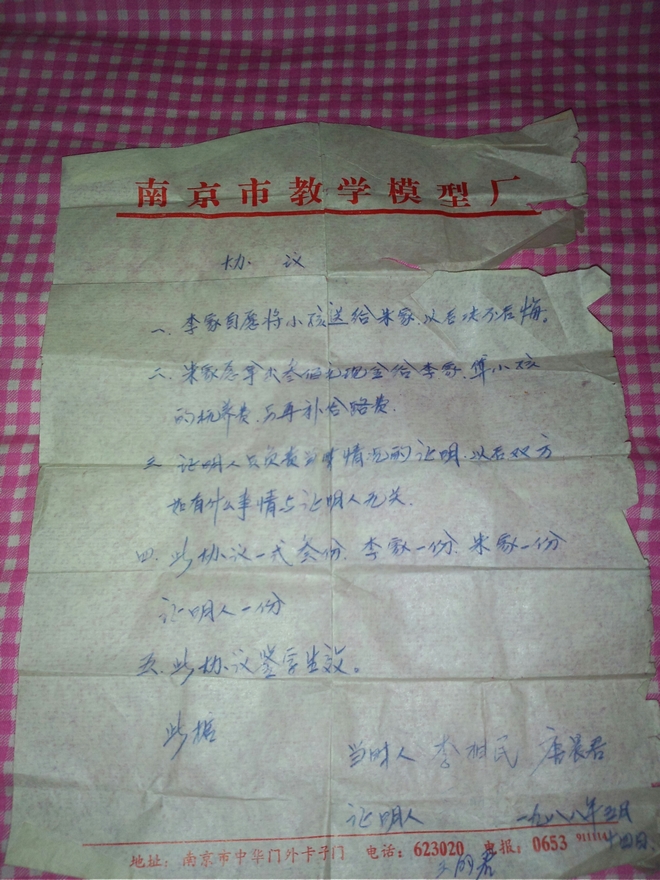 南京市教学模型厂
协 议
一、李家自愿将小孩送给朱家.以后决不后悔。
二、朱家愿拿出叁佰元现金给李家.算小孩
的抚养费.另再补给路费.
三、证明人只负责当事情况的证明.以后双方
如有什么事情与证明人无关.
四、此协议一式叁份.李家一份.朱家一份
证明人一份
五、此协议鉴字生效。
此据
当时人 李相民
证明人 一九八八年五月
十四日
地址:南京市中华门外卡子门 电话:623020 电报:0653